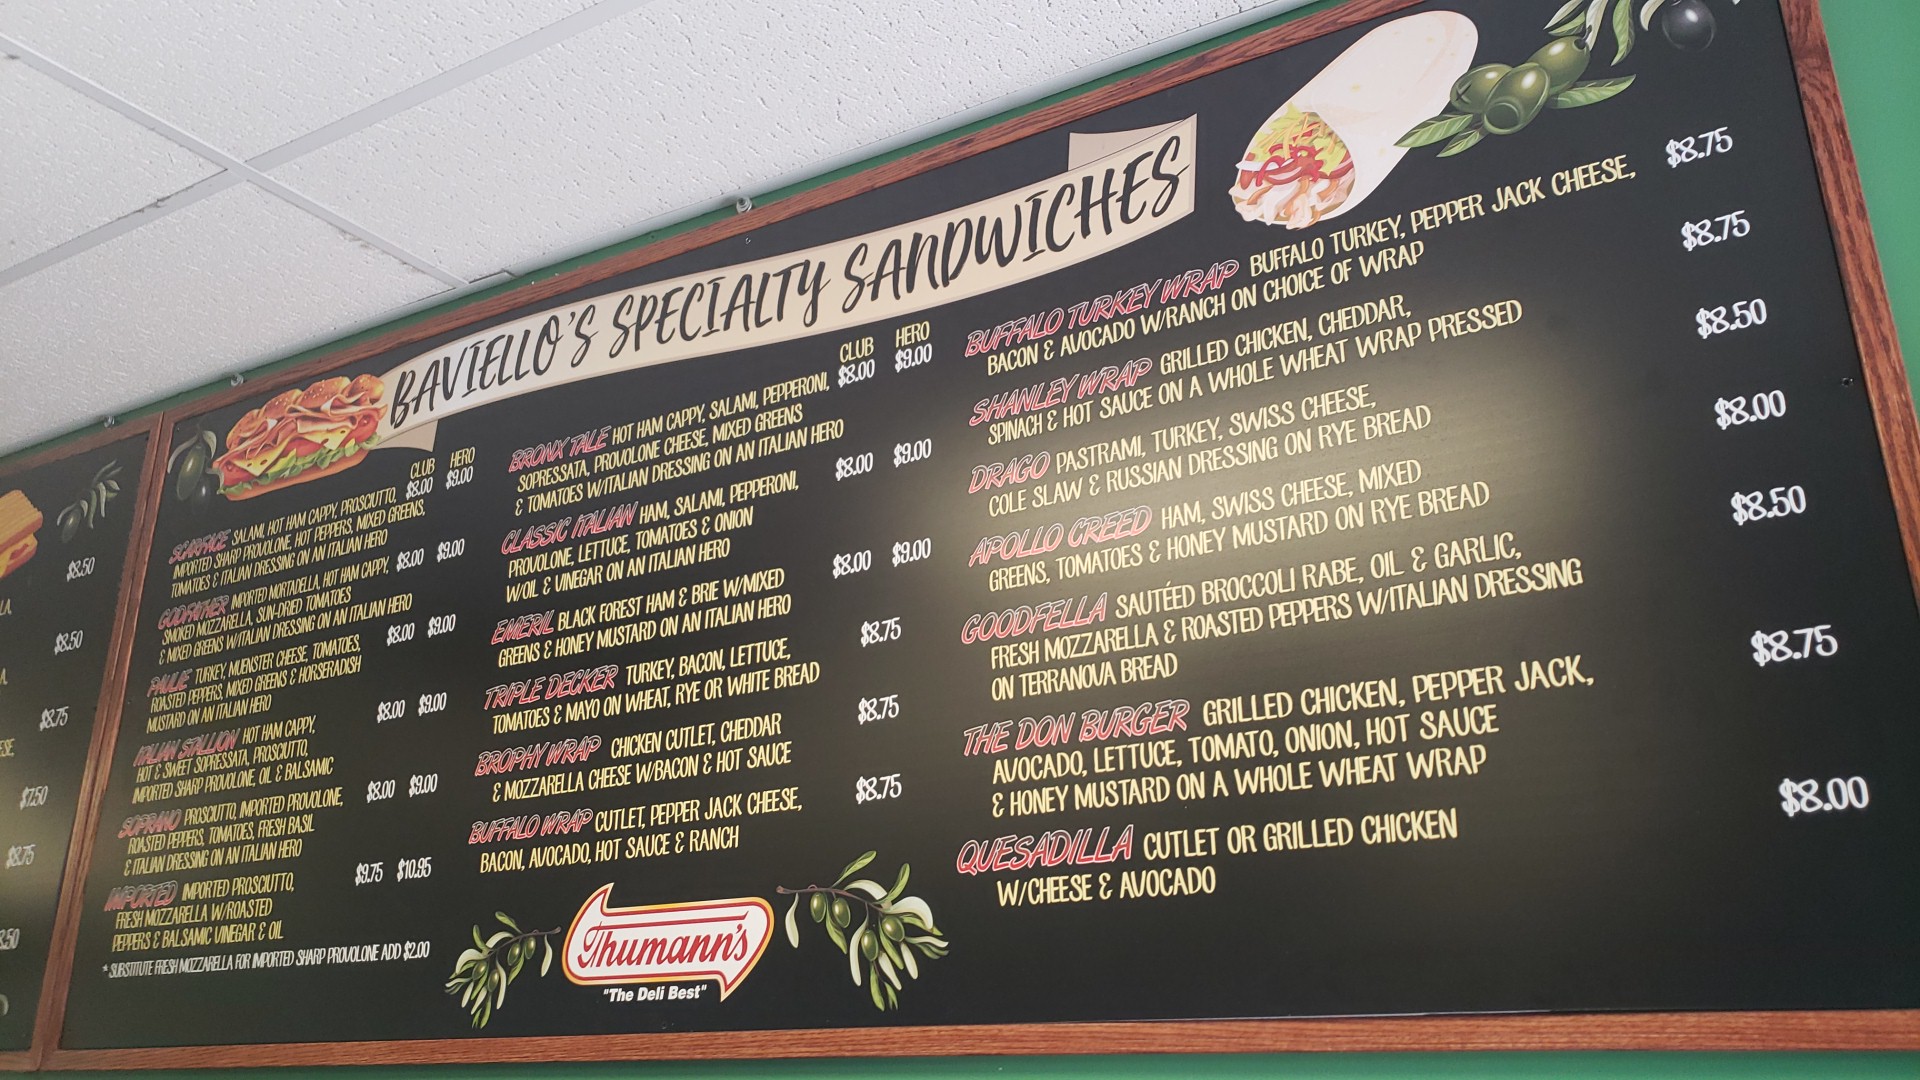 BAVIELLO'S SPECIALTY SANDWICHES
$8.50
LA,
$8.50
A,
$8.75
ESE,
$7.50
$8.75
8.50
CLUB HERO
$8.00 $9.00
SCARFACE SALAMI, HOT HAM CAPPY, PROSCIUTTO,
IMPORTED SHARP PROVOLONE, HOT PEPPERS, MIXED GREENS,
TOMATOES & ITALIAN DRESSING ON AN ITALIAN HERO
$8.00 $9.00
GODFATHER IMPORTED MORTADELLA, HOT HAM CAPPY,
SMOKED MOZZARELLA, SUN-DRIED TOMATOES
& MIXED GREENS W/ITALIAN DRESSING ON AN ITALIAN HERO
$8.00 $9.00
PAULIE TURKEY, MUENSTER CHEESE, TOMATOES,
ROASTED PEPPERS, MIXED GREENS & HORSERADISH
MUSTARD ON AN ITALIAN HERO
$8.00 $9.00
ITALIAN STALLION HOT HAM CAPPY,
HOT & SWEET SOPRESSATA, PROSCIUTTO,
IMPORTED SHARP PROVOLONE, OIL & BALSAMIC
$8.00 $9.00
SOPRANO PROSCIUTTO, IMPORTED PROVOLONE,
ROASTED PEPPERS, TOMATOES, FRESH BASIL
& ITALIAN DRESSING ON AN ITALIAN HERO
$9.75 $10.95
IMPORTED IMPORTED PROSCIUTTO,
FRESH MOZZARELLA W/ROASTED
PEPPERS & BALSAMIC VINEGAR & OIL
* SUBSTITUTE FRESH MOZZARELLA FOR IMPORTED SHARP PROVOLONE ADD $2.00
CLUB HERO
$8.00 $9.00
BRONX TALE HOT HAM CAPPY, SALAMI, PEPPERONI,
SOPRESSATA, PROVOLONE CHEESE, MIXED GREENS
& TOMATOES W/ITALIAN DRESSING ON AN ITALIAN HERO
$8.00 $9.00
CLASSIC ITALIAN HAM, SALAMI, PEPPERONI,
PROVOLONE, LETTUCE, TOMATOES & ONION
W/OIL & VINEGAR ON AN ITALIAN HERO
$8.00 $9.00
EMERIL BLACK FOREST HAM & BRIE W/MIXED
GREENS & HONEY MUSTARD ON AN ITALIAN HERO
$8.75
TRIPLE DECKER TURKEY, BACON, LETTUCE,
TOMATOES & MAYO ON WHEAT, RYE OR WHITE BREAD
$8.75
BROPHY WRAP CHICKEN CUTLET, CHEDDAR
& MOZZARELLA CHEESE W/BACON & HOT SAUCE
$8.75
BUFFALO WRAP CUTLET, PEPPER JACK CHEESE,
BACON, AVOCADO, HOT SAUCE & RANCH
Thumann's
"The Deli Best"
$8.75
BUFFALO TURKEY WRAP BUFFALO TURKEY, PEPPER JACK CHEESE,
BACON & AVOCADO W/RANCH ON CHOICE OF WRAP
$8.75
SHANLEY WRAP GRILLED CHICKEN, CHEDDAR,
SPINACH & HOT SAUCE ON A WHOLE WHEAT WRAP PRESSED
$8.50
DRAGO PASTRAMI, TURKEY, SWISS CHEESE,
COLE SLAW & RUSSIAN DRESSING ON RYE BREAD
$8.00
APOLLO CREED HAM, SWISS CHEESE, MIXED
GREENS, TOMATOES & HONEY MUSTARD ON RYE BREAD
$8.50
GOODFELLA SAUTÉED BROCCOLI RABE, OIL & GARLIC,
FRESH MOZZARELLA & ROASTED PEPPERS W/ITALIAN DRESSING
ON TERRANOVA BREAD
$8.75
THE DON BURGER GRILLED CHICKEN, PEPPER JACK,
AVOCADO, LETTUCE, TOMATO, ONION, HOT SAUCE
& HONEY MUSTARD ON A WHOLE WHEAT WRAP
$8.00
QUESADILLA CUTLET OR GRILLED CHICKEN
W/CHEESE & AVOCADO